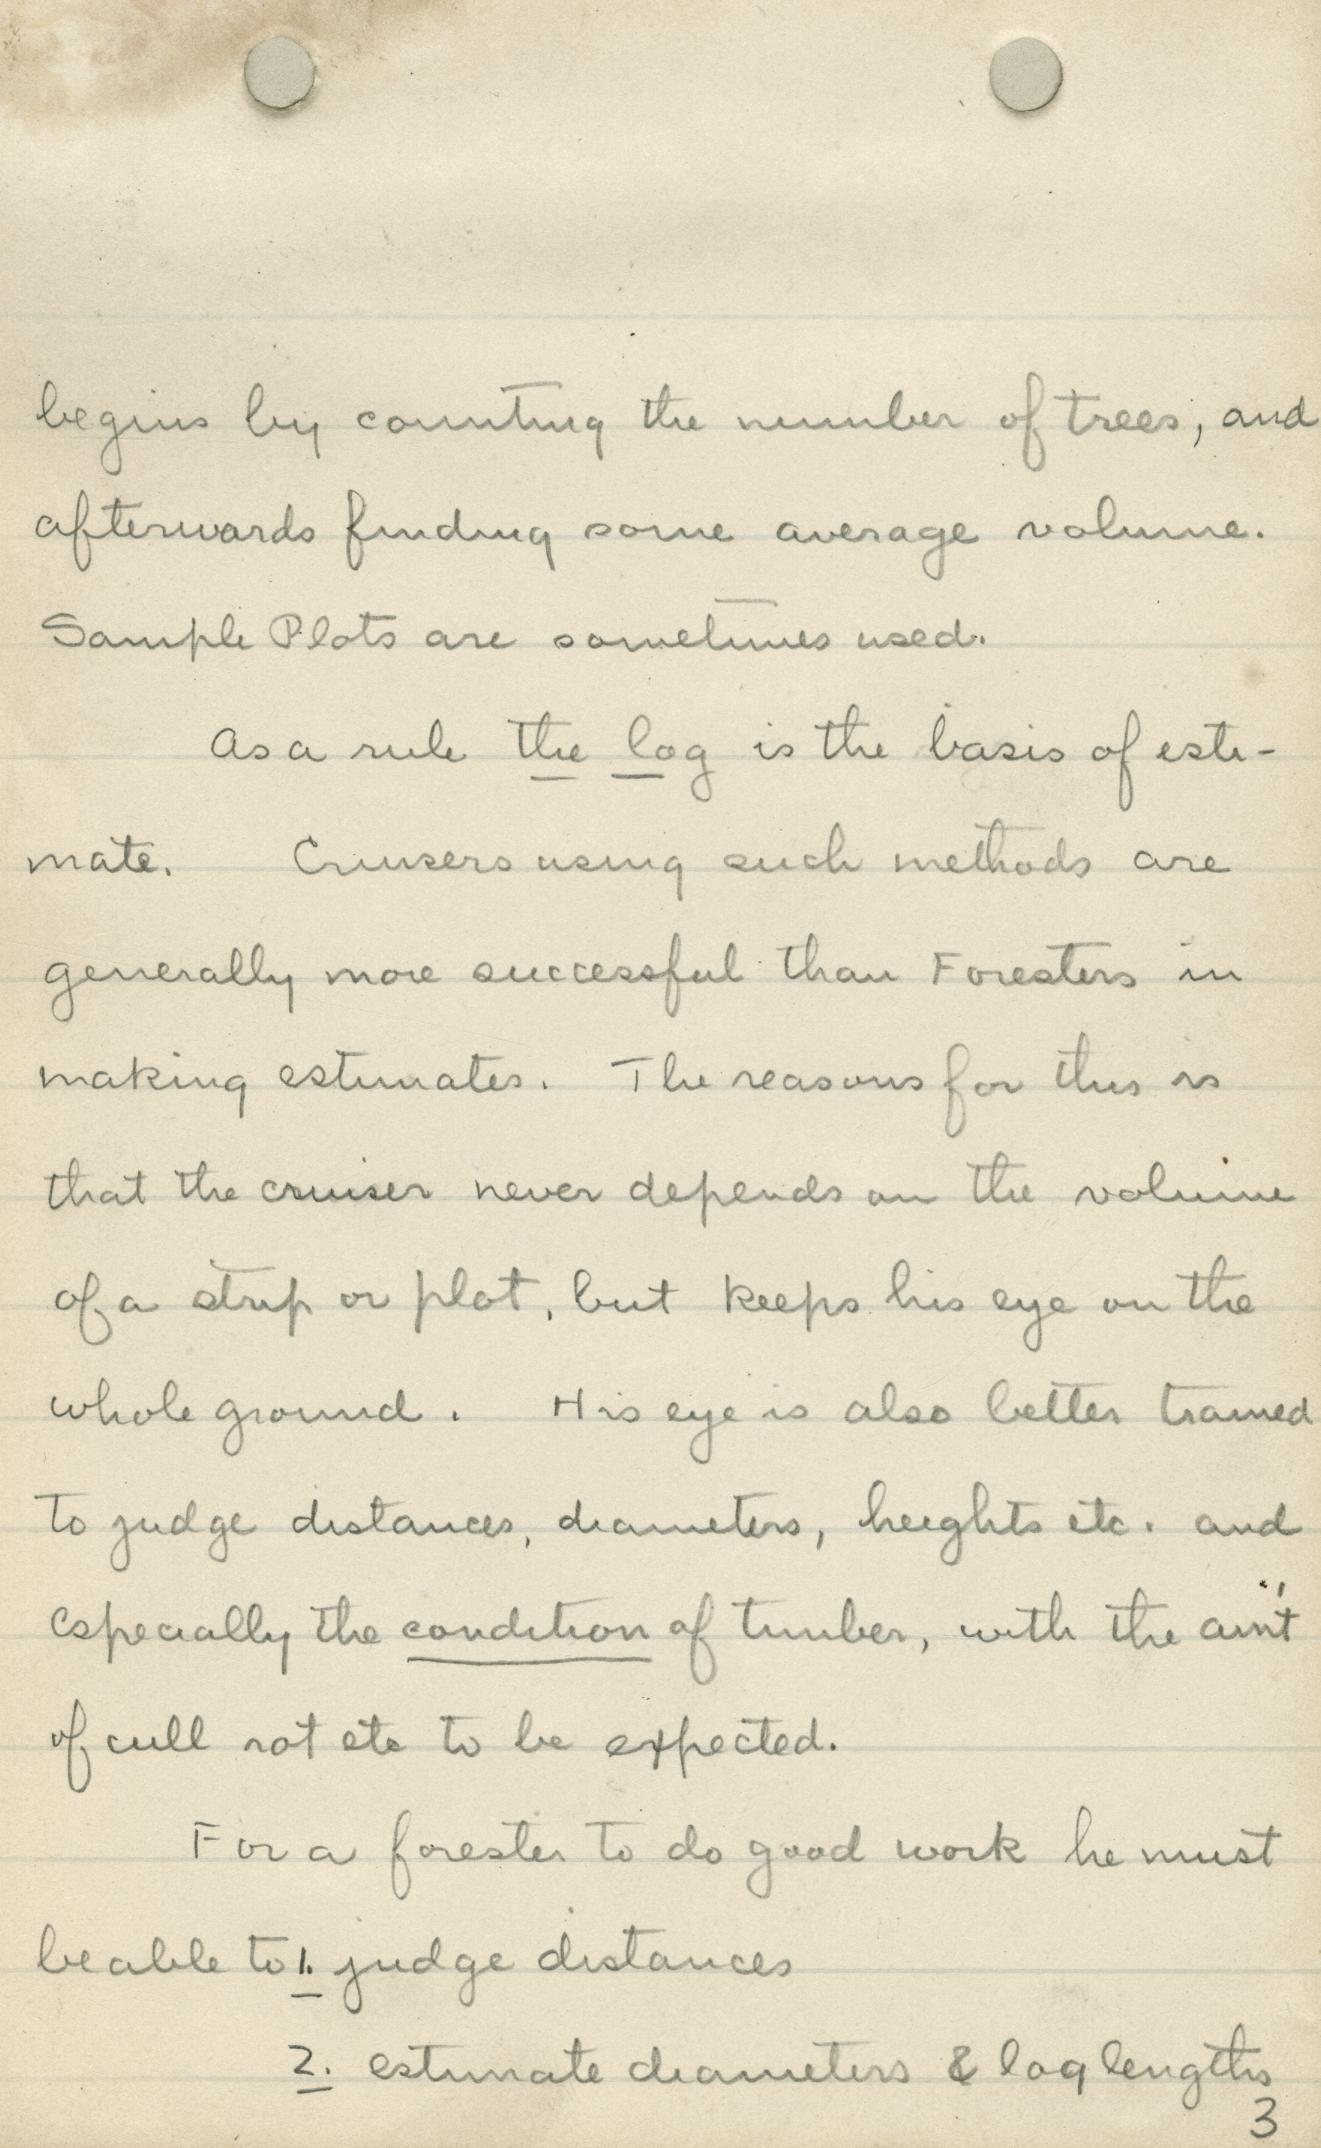 begins by counting the number of trees, and
afterwards finding some average volume.
Sample Plots are sometimes used.
As a rule the log is the basis of esti-
mate. Cruisers using such methods are
generally more successful than Foresters in
making estimates. The reasons for this is
that the cruiser never depends on the volume
of a strip or plot, but keeps his eye on the
whole ground. His eye is also better trained
to judge distances, diameters, heights etc. and
especially the condition of timber, with the am't
of cull rot etc to be expected.
For a forester to do good work he must
be able to 1. judge distances
2. estimate diameters & log lengths
3